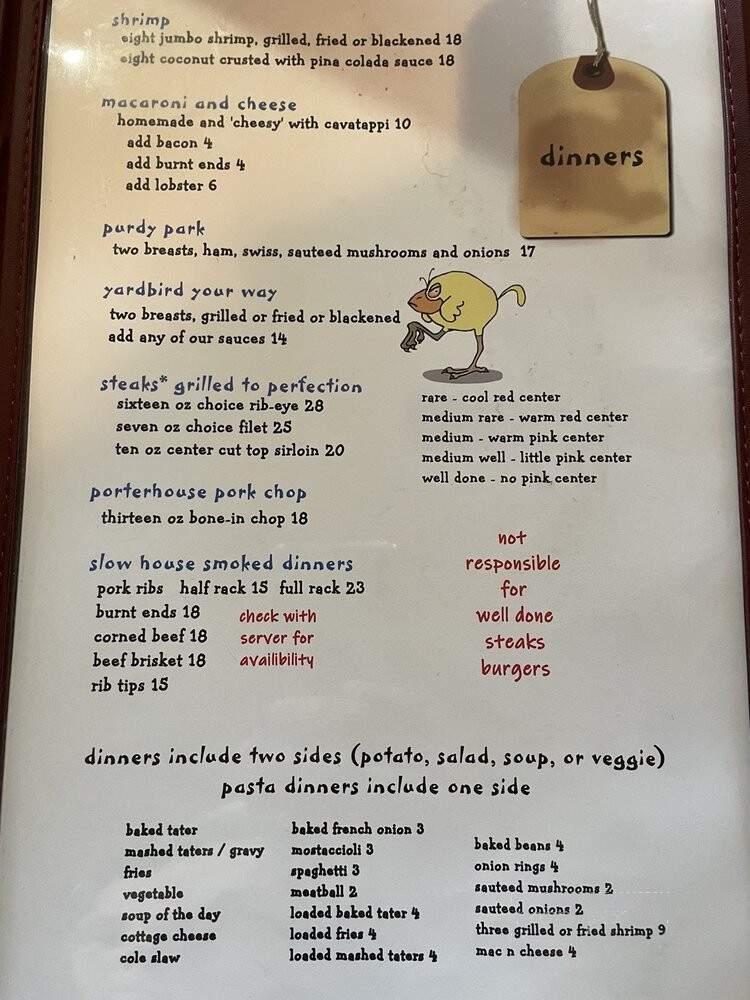 shrimp
eight jumbo shrimp, grilled, fried or blackened 18
eight coconut crusted with pina colada sauce 18
dinners
macaroni and cheese
homemade and 'cheesy' with cavatappi 10
add bacon 4
add burnt ends 4
add lobster 6
purdy park
two breasts, ham, swiss, sauteed mushrooms and onions 17
yardbird your way
two breasts, grilled or fried or blackened
add any of our sauces 14
steaks* grilled to perfection
sixteen oz choice rib-eye 28
seven oz choice filet 25
ten oz center cut top sirloin 20
rare - cool red center
medium rare - warm red center
medium - warm pink center
medium well - little pink center
well done - no pink center
porterhouse pork chop
thirteen oz bone-in chop 18
slow house smoked dinners
pork ribs half rack 15 full rack 23
burnt ends 18
corned beef 18
beef brisket 18
rib tips 15
check with
server for
availibility
not
responsible
for
well done
steaks
burgers
dinners include two sides (potato, salad, soup, or veggie)
pasta dinners include one side
baked tater
mashed taters / gravy
fries
vegetable
soup of the day
cottage cheese
cole slaw
baked french onion 3
mostaccioli 3
spaghetti 3
meatball 2
loaded baked tater 4
loaded fries 4
loaded mashed taters 4
baked beans 4
onion rings 4
sauteed mushrooms 2
sauteed onions 2
three grilled or fried shrimp 9
mac n cheese 4